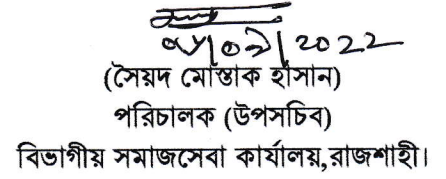 (সৈয়দ মোস্তাক হাসান)
পরিচালক (উপসচিব)
বিভাগীয় সমাজসেবা কার্যালয়,রাজশাহী।